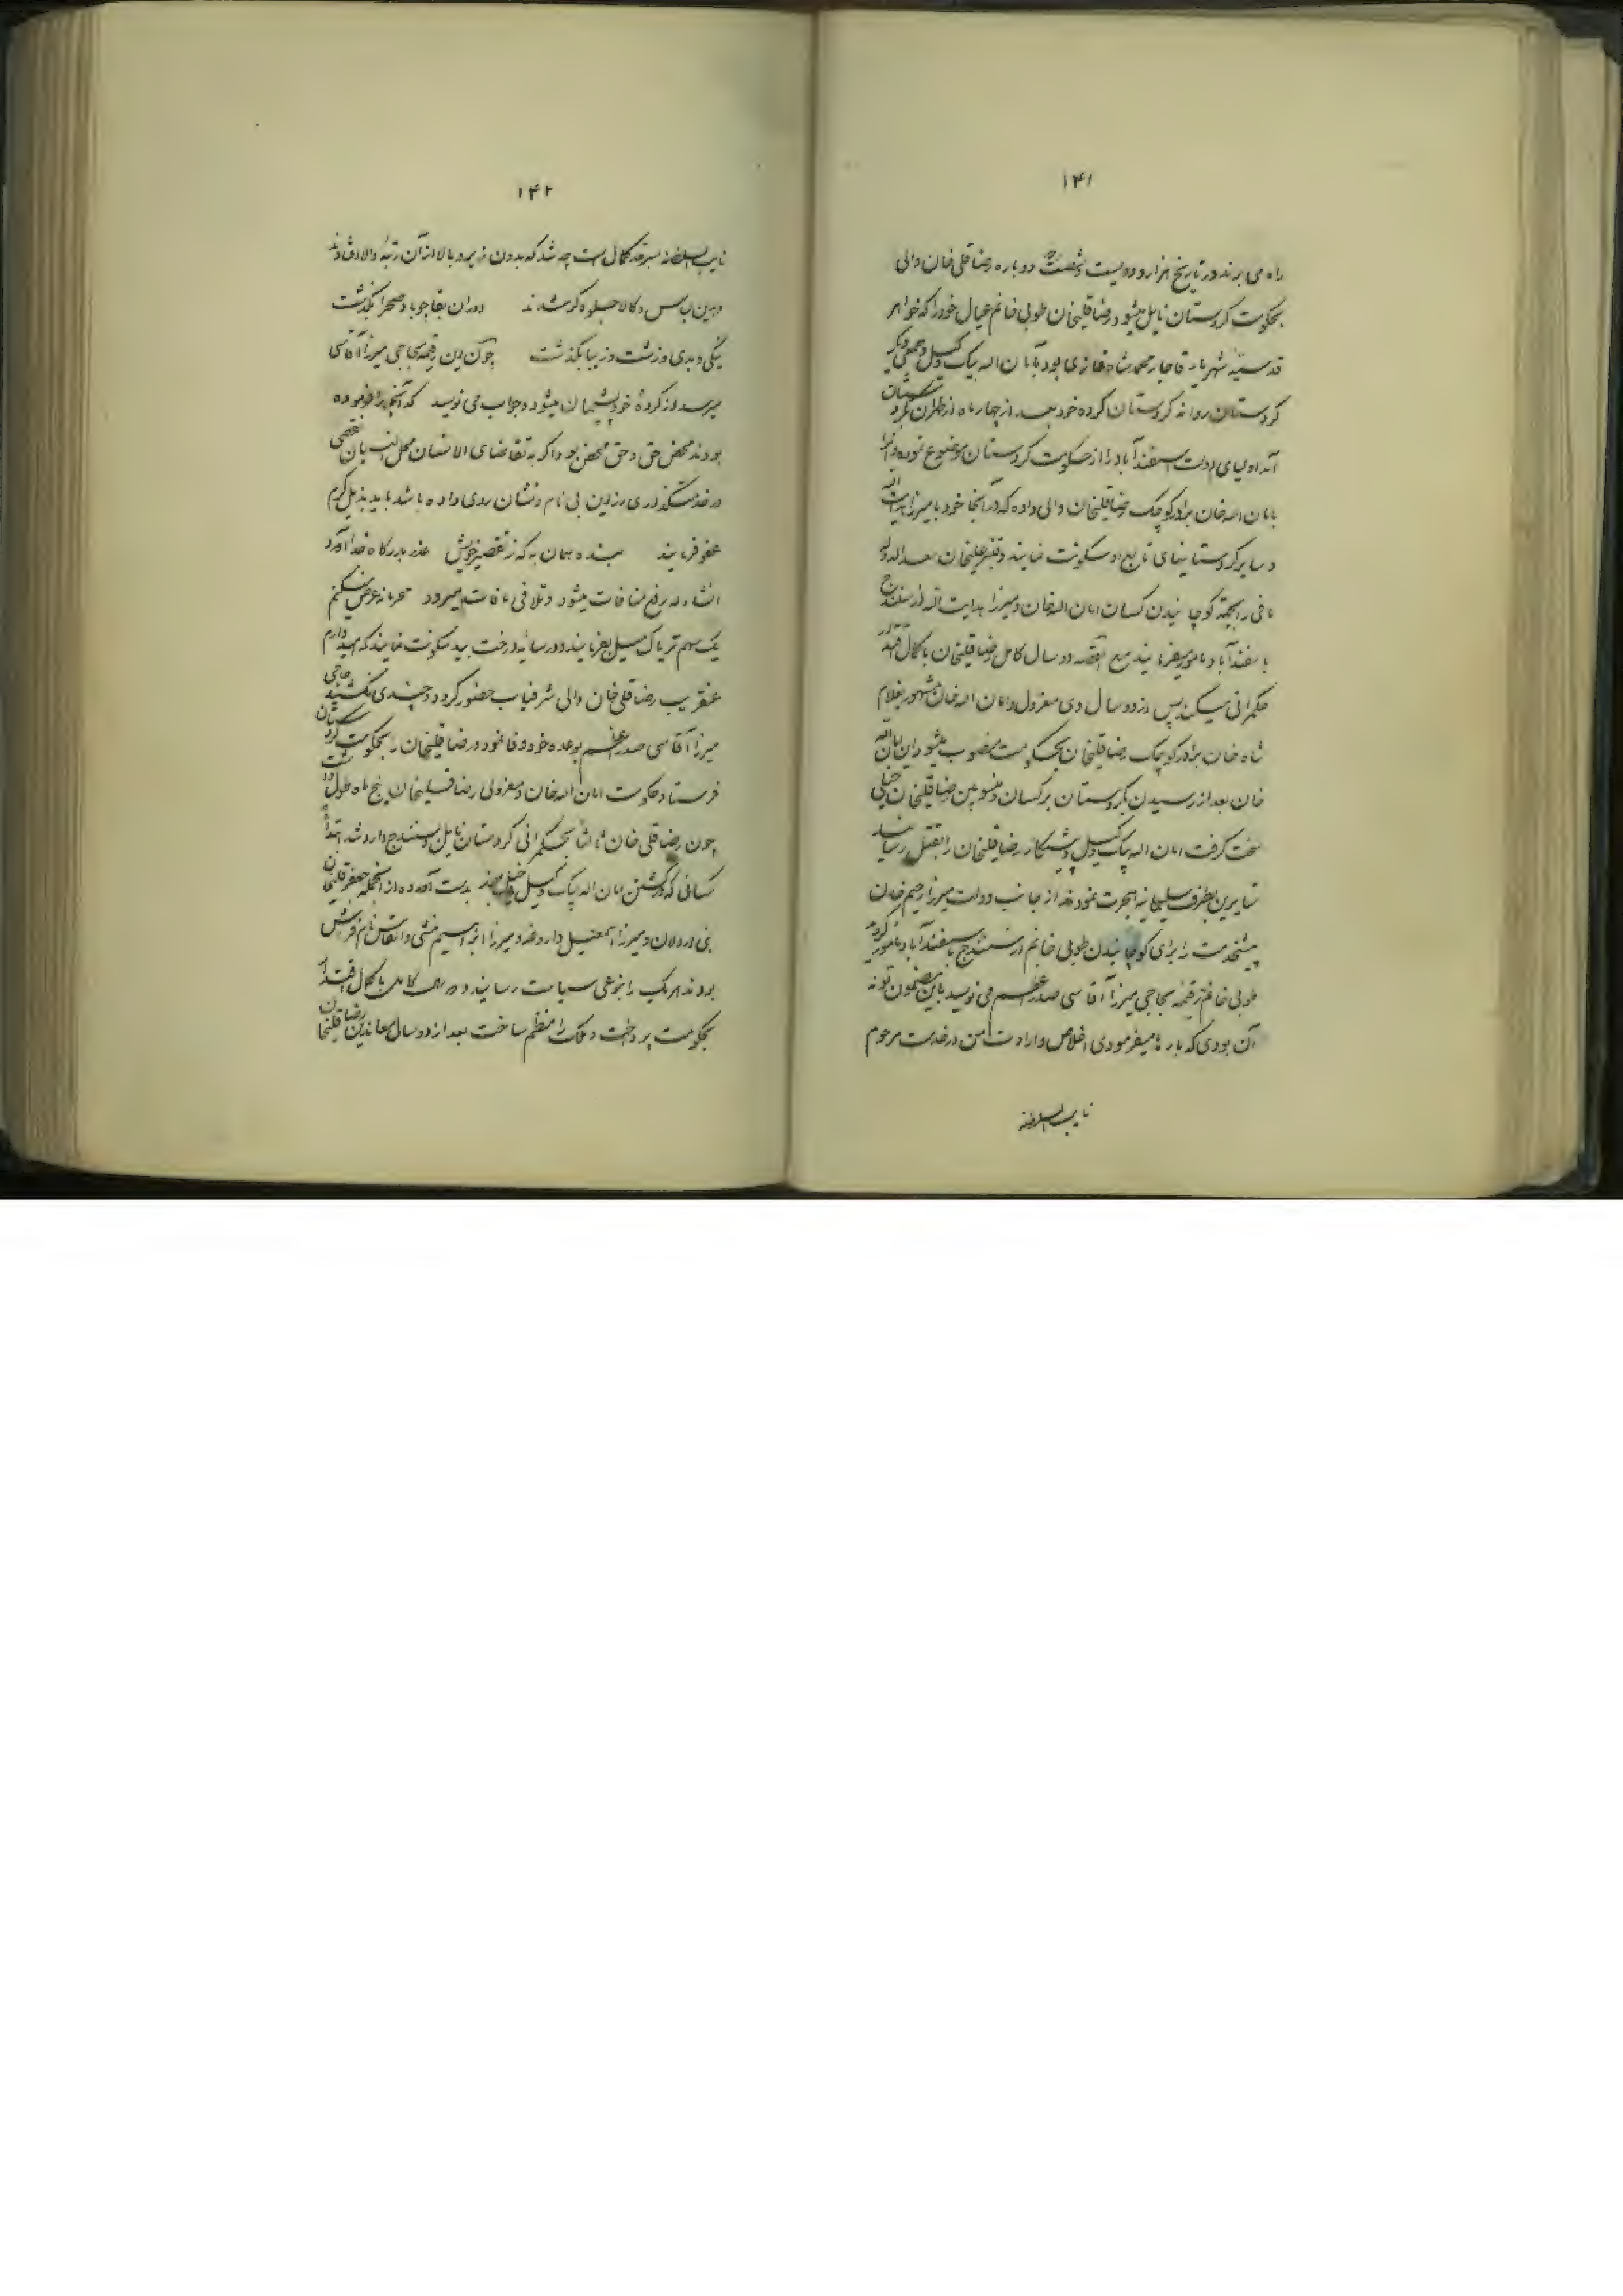 ۱۴۱
راه می برند در تاریخ هزار و دویست و شصت دوباره رضا قلی خان والی
بحکومت کردستان نایل میشود رضا قلیخان طوبی خانم عیال خود را که خواهر
قدسیه شهریار قاجار محمد شاه غازی بود با امان اله بیک وکیل و جمعی دیگر
کردستان روانه کردستان کرده خود بعد از چهار ماه از طهران بکردستان
آمد اولیای دولت اسفندآباد را از حکومت کردستان موضوع نموده و آنرا
بامان اله خان برادر کوچک رضا قلیخان والی داده که در آنجا خود با میرزا هدایت اله
و سایر کردستانیهای تابع او سکونت نمایند و قنبر علیخان سعدالدوله
مافی را بجهة کوچانیدن کسان امان اله خان و میرزا هدایت اله از سنندج
باسفندآباد مامور میفرمایند مع القصه دو سال کامل رضا قلیخان با کمال اقتدار
حکمرانی میکند پس از دو سال وی معزول و امان اله خان مشهور بغلام
شاه خان برادر کوچک رضا قلیخان بحکومت منصوب میشود این امان اله
خان بعد از رسیدن بکردستان بر کسان و منسوبین رضا قلیخان خیلی
سخت گرفت امان اله بیک وکیل و پیشکار رضا قلیخان را بقتل رسانید
سایرین بطرف سلیمانیه هجرت نمودند از جانب دولت میرزا رحیم خان
پیشخدمت را برای کوچانیدن طوبی خانم از سنندج باسفندآباد مامور کردند
طوبی خانم رقیمه بحاجی میرزا آقاسی صدر اعظم می نویسد باین مضمون تو نه
آن بودی که بارها میفرمودی اخلاص و ارادت من در خدمت مرحوم
نایب السلطنه
۱۴۲
نایب السلطنه بسر حد کمال است چه شد که بدون زیر و بالا از آن رتبه والا
در این لباس و کالا جلوه گر شدند دوران بقا چو باد صحرا بگذشت
نیکی و بدی و زشت و زیبا بگذشت چون این رقیمه بحاجی میرزا آقاسی
میرسد از کرده خود پشیمان میشود و جواب می نویسد که آنچه را فرموده
بودند محض حق و حق محض بود اگر به تقاضای الانسان محل النسیان نقصی
در خدمتگذاری از این بی نام و نشان روی داده باشد باید بذیل کرم
عفو فرمایند بنده همان به که ز تقصیر خویش عذر بدرگاه خدا آورد
انشاء اله رفع منافات میشود و تلافی مافات میرود محرمانه عرض میکنم
یک سهم تریاک سبیل بفرمایند و در سایه درخت بید سکونت نمایند که امیدوارم
عنقریب رضا قلی خان والی شرفیاب حضور گردد و چندی نگذشته حاجی
میرزا آقاسی صدر اعظم بوعده خود وفا نمود و رضا قلیخان را بحکومت کردستان
فرستاد حکومت امان اله خان و معزولی رضا قلیخان پنج ماه طول داشت
چون رضا قلی خان ثالثاً بحکمرانی کردستان نایل و بسنندج وارد شد ابتداءً
کسانی که در کشتن امان اله بیک وکیل دخیل بودند بدست آورده از آنجمله جعفر قلیخان
بنی اردلان و میرزا اسمعیل داروغه و میرزا ابراهیم منشی و الماس نام فراش
بودند هر یک را بنوعی سیاست رسانید و دو سال کامل با کمال اقتدار
بحکومت پرداخت و مملکت را منظم ساخت بعد از دو سال معاندین رضا قلیخان